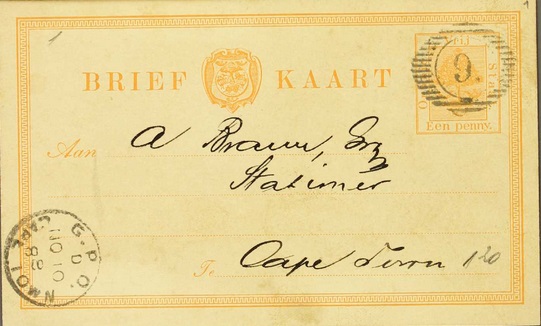 1
BRIEF KAART
9.
Een penny.
Aan A Braun, Esq
Stationer
Te Cape Town 120
G.P.O.
CAPE TOWN
D
NO 10
89